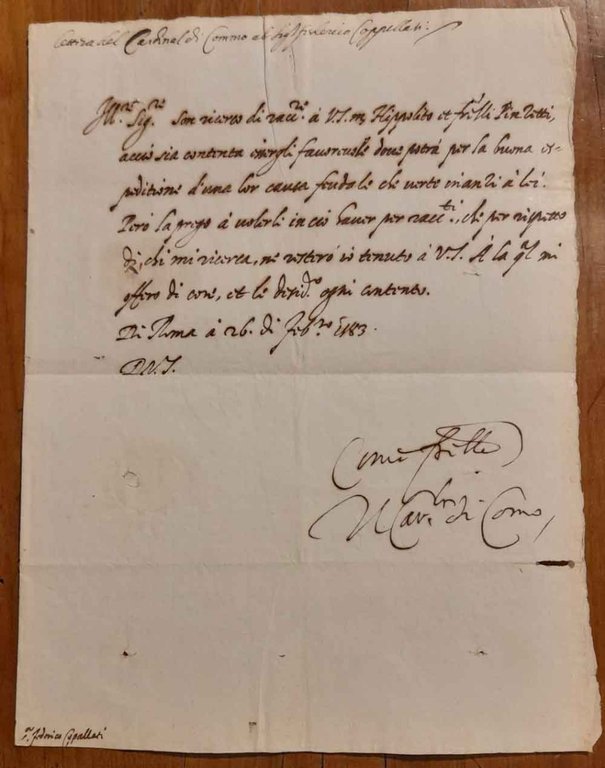 lettera del Cardinal di Commo al Sig.r Federico Cappellati.
Ill.re Sig.re Son ricerco di racc.re à V.S. m. Hippolito et fr̃elli Pinzetti,
acciò sia contenta esergli favorevole dove potrà per la buona es-
peditione d'una lor causa feudale che verte inanzi à lei.
Però la prego à volerli in ciò haver per racc.ti, che per rispetto
di chi mi ricerca, ne resterò io tenuto à V.S. À la q̃l mi
offero di core, et le desid.o ogni contento.
Di Roma à 26. di feb.ro 1583.
D.V.S.
Come fr̃ello
Il Car.le di Como,
S.r Federico Cappellati